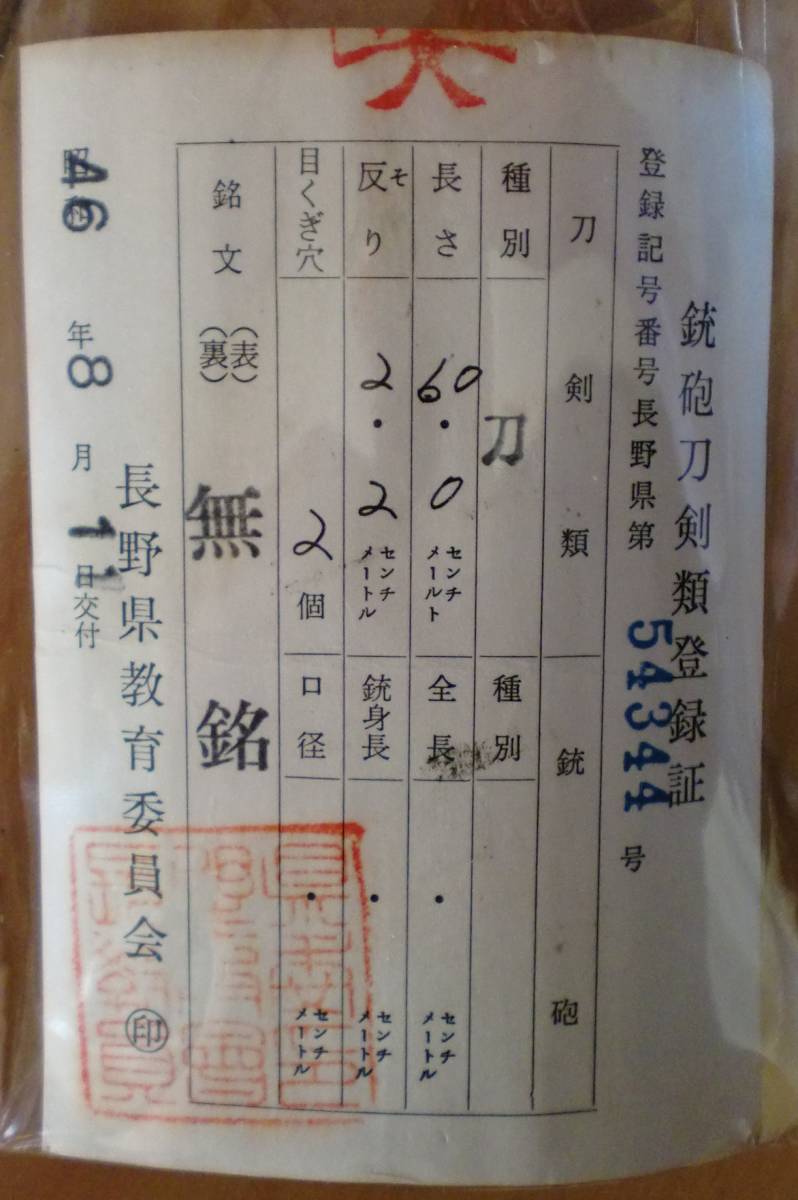 銃砲刀剣類登録証
登録記号番号長野県第54344号
刀剣類
銃砲
種別 刀
種別
長さ 60.0センチメールト
全長 ・ センチメートル
反り そ 2.2センチメートル
銃身長 ・ センチメートル
目くぎ穴 2個
口径 ・ センチメートル
銘文 (表)(裏) 無銘
長野県教育委員会 ㊞
昭和46年8月1日交付